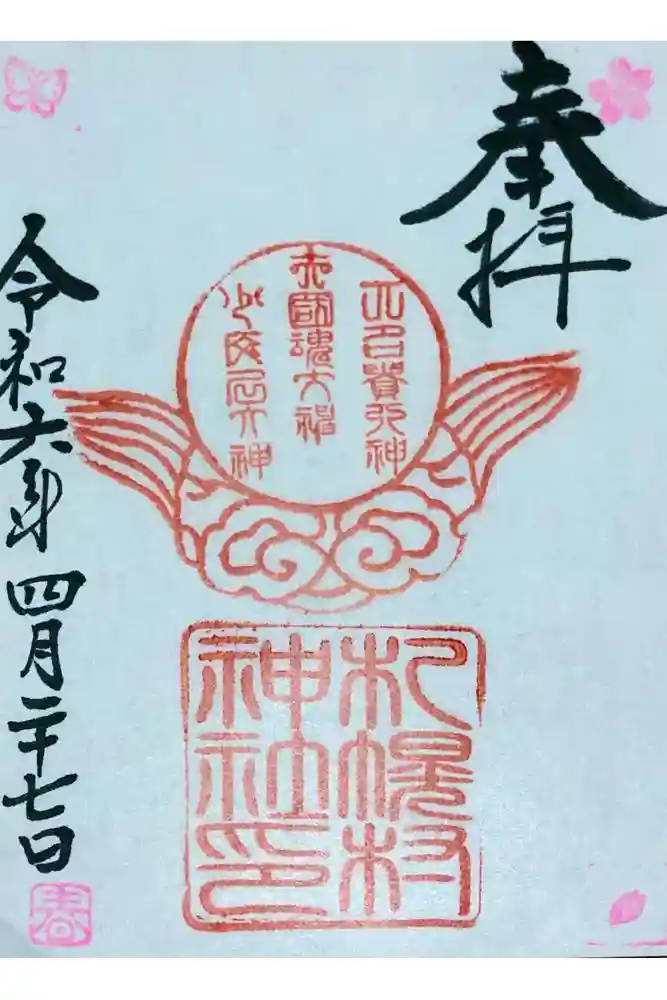 奉拝
大己貴大神
大國魂大神
少彦名大神
札幌村
神社印
令和六年四月二十七日
春